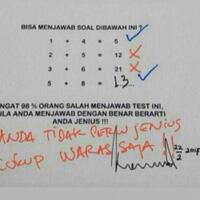 BISA MENJAWAB SOAL DIBAWAH INI ?
1 + 4 = 5
2 + 5 = 12
3 + 6 = 21
5 + 8 = 13
NGAT 98 % ORANG SALAH MENJAWAB TEST INI,
ILA ANDA MENJAWAB DENGAN BENAR BERARTI
ANDA JENIUS !!!
ANDA TIDAK PERLU JENIUS
CUKUP WARAS SAJA
22/2 2018